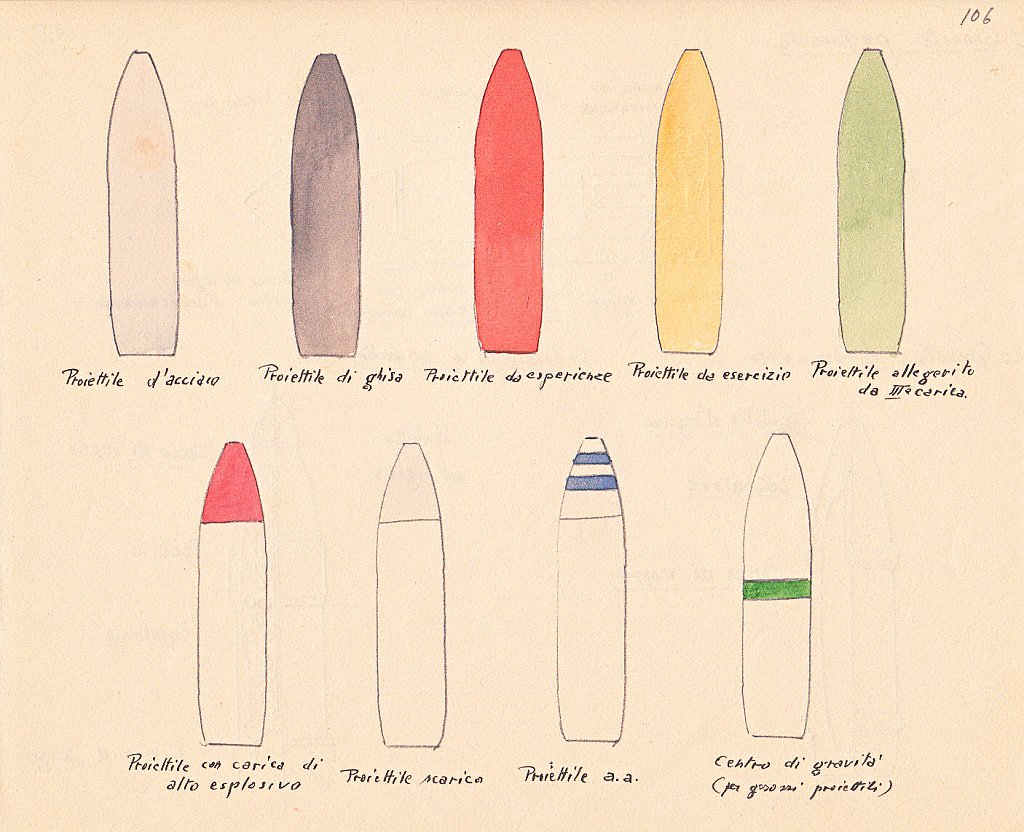 106
Proiettile d'acciaio
Proiettile di ghisa
Proiettile da esperienze
Proiettile da esercizio
Proiettile allegerito
da IIIa carica.
Proiettile con carica di
alto esplosivo
Proiettile scarico
Proiettile a.a.
Centro di gravita'
(per grossi proiettili)